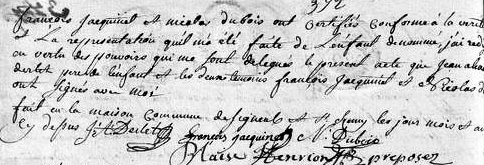 372
françois jacquinet et nicolas dubois ont certifiés conforme a la verite
et La representation quil ma été faite de Lenfant denommé, j'ai red
en vertu des pouvoirs que me sont delegues le present acte que jean
derlet pere de lenfant et les deux temoins françois Jacquinet et Nicolas du
ont signés avec moi
fait en la maison Commune de les jours mois et an
cy dessus Derlet françois jacquinet N. Dubois
Henrion preposez